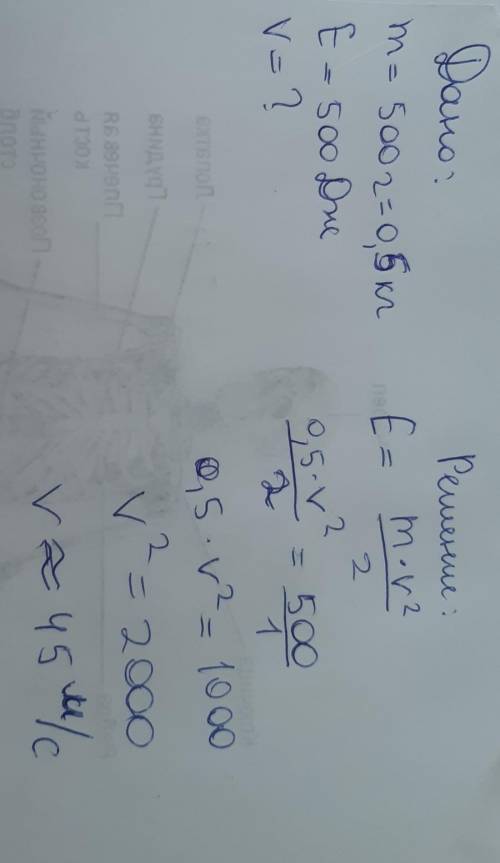 Дано:
m = 500 г = 0,5 кг
E = 500 Дж
v = ?
Решение:
E = m·v² / 2
0,5·v² / 2 = 500 / 1
0,5·v² = 1000
v² = 2000
v ≈ 45 м/с